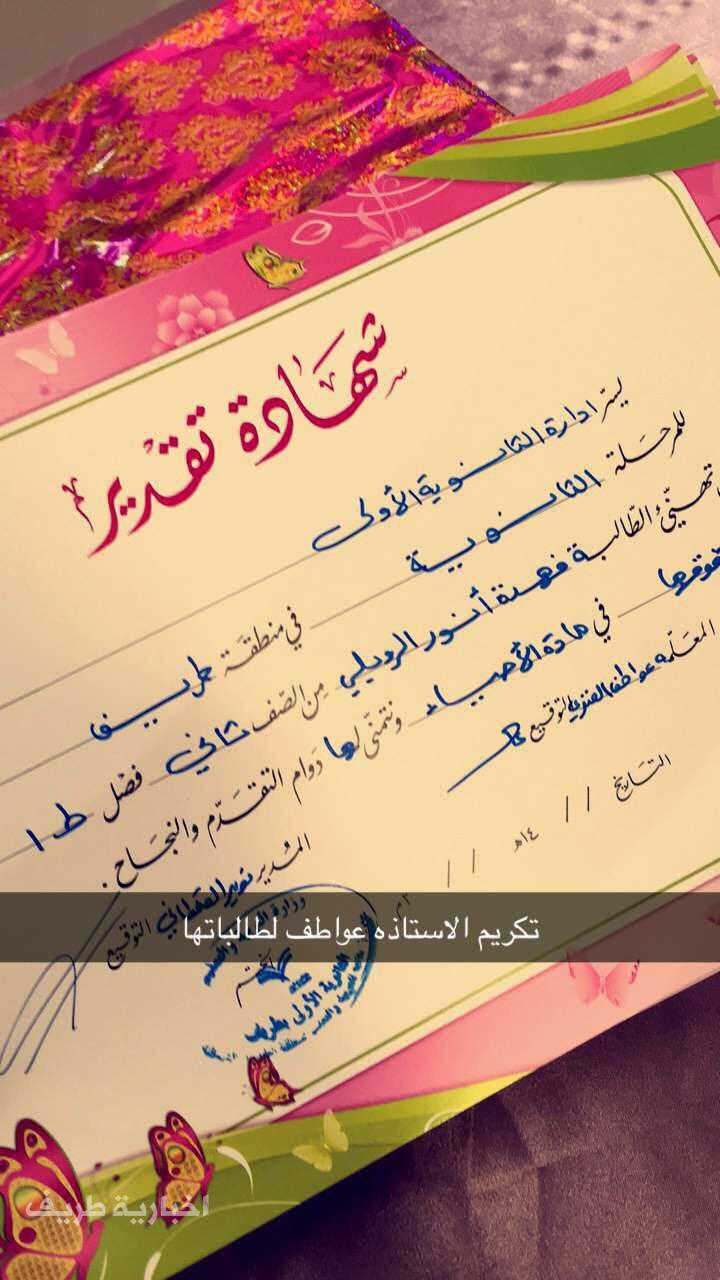 شهادة تقدير
يسر ادارة الثانوية الأولى
للمرحلة الثانوية في منطقة طريف
تهنئ الطالبة فهدة أنور الرويلي من الصف ثاني فصل ط ١
تفوقها في مادة الأحياء ونتمنى لها دوام التقدم والنجاح .
المعلمه عواطف العنزي التوقيع
المدير نوير القحطاني التوقيع
التاريخ / / ١٤هـ / / ٢م
تكريم الاستاذه عواطف لطالباتها
وزارة التربية والتعليم
الختم
الثانوية الأولى بطريف
اخبارية طريف